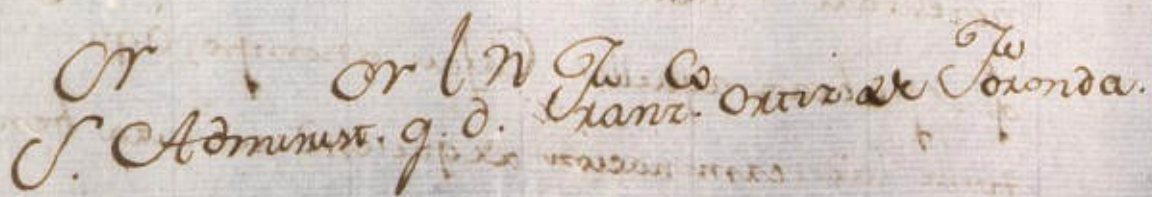 S.or Administ.or g.l d.n Franz.co Ortiz de Foronda.